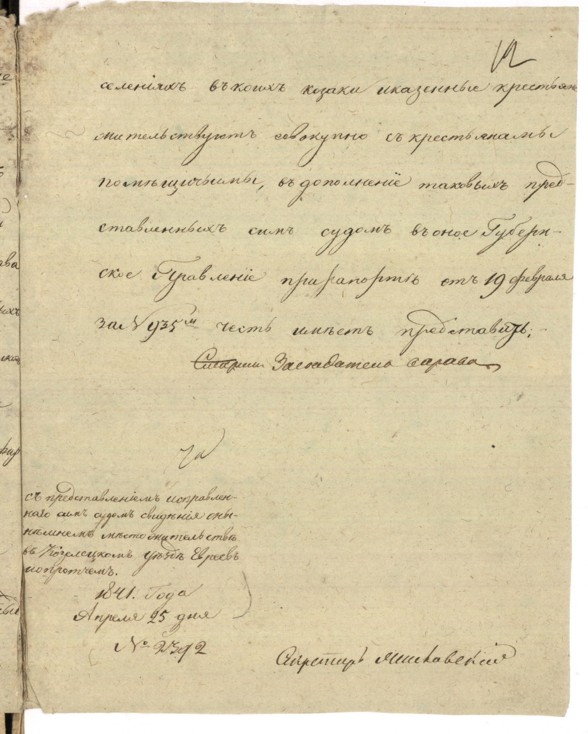 селеніяхъ въ коихъ козаки и казенные крестьяне
жительствуютъ совокупно съ крестьянами
помѣщичьими, въ дополненіе таковыхъ пред-
ставленныхъ симъ судомъ въ оное Губерн-
ское Правленіе при рапортѣ отъ 19 февраля
за N 935м честь имѣетъ представить,
Засѣдатель
съ представленіемъ исправлен-
наго симъ судомъ свидѣнія о ны-
нѣшнемъ мѣстожительствѣ
въ Козелецкомъ уѣздѣ Евреевъ
и о протчемъ.
1841. Года
Апреля 25 дня
№ 2392
Секретарь